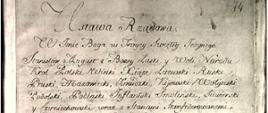 14
Ustawa Rządowa.
W Imie Boga w Troycy Swiętey Iedynego
Stanisław August z Bożey Łaski y Woli Narodu
Krol Polski, Wielki Xiąże Litewski, Ruski
Pruski Mazowiecki, Żmudzki, Kiiowski Wołyński
Podolski, Podlaski Inflantski Smolenski, Siewierski
y Czerniechowski, wraz z Stanami Skonfederowanemi